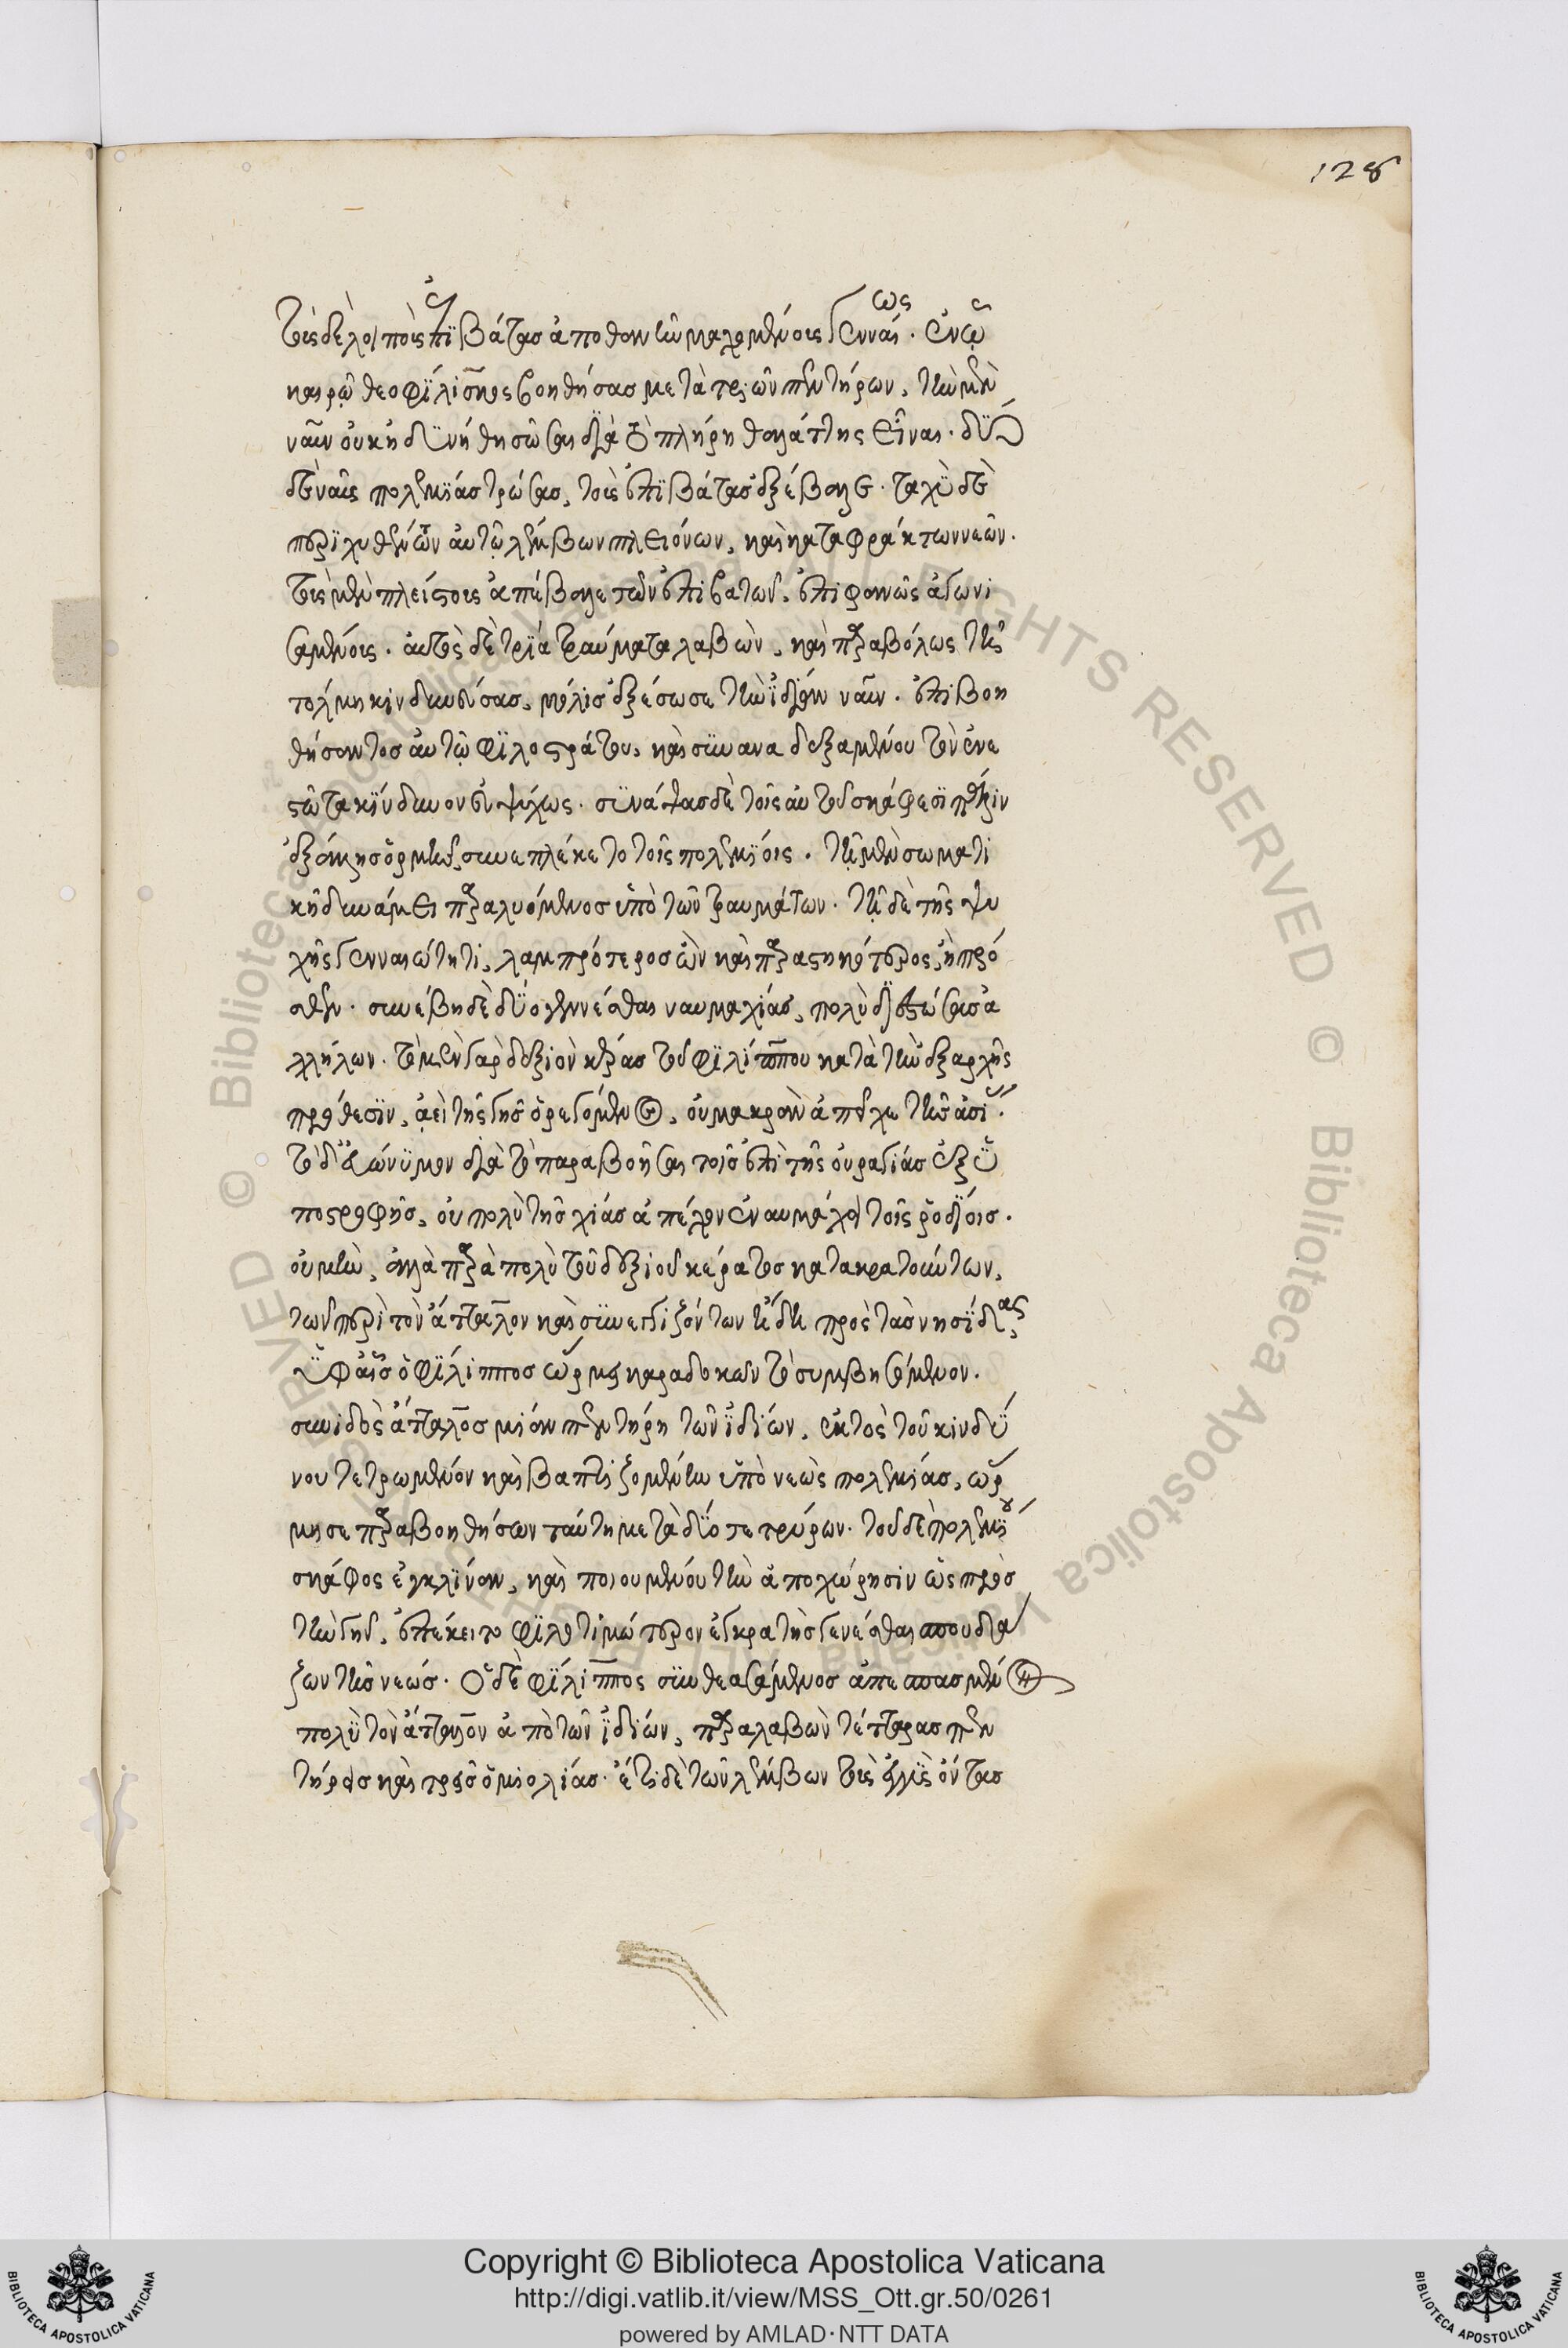 128
τοὺς δὲ λοιποὺς ἐπιβάτας ἀποθανεῖν μαχομένους γενναίως. ἐν ᾧ
καιρῷ θεοφίλισκος βοηθήσας μετὰ τριῶν πεντήρων, τὴν μὲν
ναῦν οὐκ ἠδυνήθη σῶσαι διὰ τὸ πλήρη θαλάττης εἶναι. δύο
δὲ ναῦς πολεμίας τρώσας, τοὺς ἐπιβάτας ἐξέβαλε. ταχὺ δὲ
περιχυθέντων αὐτῷ λέμβων πλειόνων, καὶ καταφράκτων νεῶν.
τοὺς μὲν πλείστους ἀπέβαλε τῶν ἐπιβατῶν, ἐπιφανῶς ἀγωνι
σαμένους. αὐτὸς δὲ τρία τραύματα λαβὼν, καὶ παραβόλως τῇ
τόλμῃ κινδυνεύσας, μόλις ἐξέσωσε τὴν ἰδίαν ναῦν. ἐπιβοη
θήσαντος αὐτῷ φιλοστράτου, καὶ συναναδεξαμένου τὸν ἐνε
στῶτα κίνδυνον εὐψύχως. συνάψας δὲ τοῖς αὐτοῦ σκάφεσι πάλιν
ἐξ ἄλλης ὁρμῆς, συνεπλέκετο τοῖς πολεμίοις. τῇ μὲν σωματι
κῇ δυνάμει παραλυόμενος ὑπὸ τῶν τραυμάτων. τῇ δὲ τῆς ψυ
χῆς γενναιότητι, λαμπρότερος ὢν καὶ παραστηκότερος, ἢ πρό
σθεν. συνέβη δὲ δύο γενέσθαι ναυμαχίας, πολὺ διεστώσας ἀ
λλήλων. τὸ μὲν γὰρ δεξιὸν κέρας τοῦ φιλίππου κατὰ τὴν ἐξ ἀρχῆς
πρόθεσιν, ἀεὶ τῆς γῆς ὀρεγόμενον, οὐ μακρὰν ἀπεῖχε τῆς ἀσίας.
τὸ δ' εὐώνυμον διὰ τὸ παραβοηθῆσαι τοῖς ἐπὶ τῆς οὐραγίας ἐξ ὑ
ποστροφῆς, οὐ πολὺ τῆς χίας ἀπέχον ἐναυμάχει τοῖς ῥοδίοις.
οὐ μὴν, ἀλλὰ παρὰ πολὺ τοῦ δεξιοῦ κέρατος κατακρατούντων,
τῶν περὶ τὸν ἄτταλον καὶ συνεγγιζόντων ἤδη πρὸς τὰς νησίδας,
ὑφ' αἷς ὁ φίλιππος ὥρμει καραδοκῶν τὸ συμβησόμενον.
συνιδὼς ἄτταλος μίαν πεντήρη τῶν ἰδίων, ἐκτὸς τοῦ κινδύ
νου τετρωμένην καὶ βαπτιζομένην ὑπὸ νεὼς πολεμίας, ὥρ
μησε παραβοηθήσων ταύτῃ μετὰ δύο τετρήρων. τοῦ δὲ πολεμίου
σκάφος ἐγκλίναν, καὶ ποιουμένου τὴν ἀποχώρησιν ὡς πρὸς
τὴν γῆν, ἐπέκειτο φιλοτιμώτερον ἐγκρατὴς γενέσθαι σπουδά
ζων τῆς νεώς. ὁ δὲ φίλιππος συνθεασάμενος ἀπεσπασμένον
πολὺ τὸν ἄτταλον ἀπὸ τῶν ἰδίων, παραλαβὼν τέτταρας πεν
τήρεις καὶ τρεῖς ἡμιολίας. ἔτι δὲ τῶν λέμβων τοὺς ἐγγὺς ὄντας
Copyright © Biblioteca Apostolica Vaticana
http://digi.vatlib.it/view/MSS_Ott.gr.50/0261
powered by AMLAD·NTT DATA